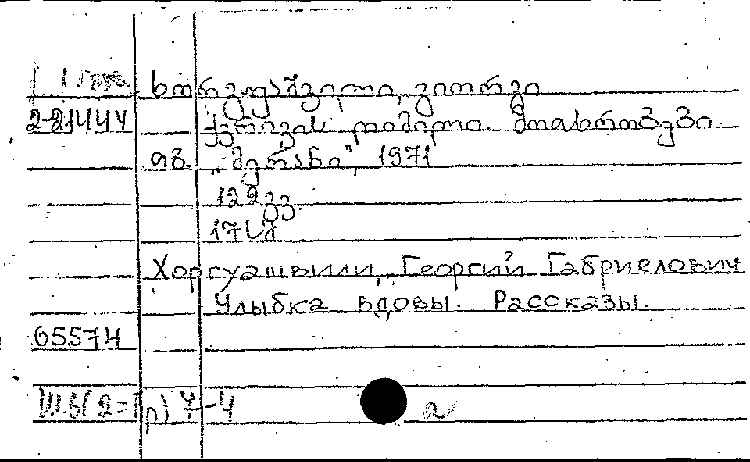 ხორგუაშვილი, გიორგი
2-21444 ქვრივის ღიმილი. მოთხრობები.
თბ. „მერანი", 1971
122 გვ.
Хоргуашвили, Георгий Габриелович
Улыбка вдовы. Рассказы.
05574